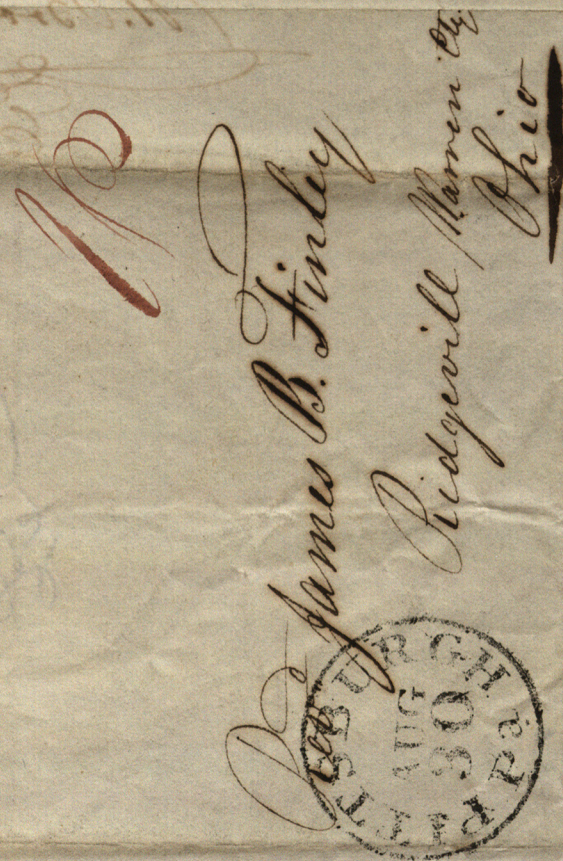 Rev James B. Finley
Ridgevill Warren Cty
Ohio
PITTSBURGH Pa
AUG
30